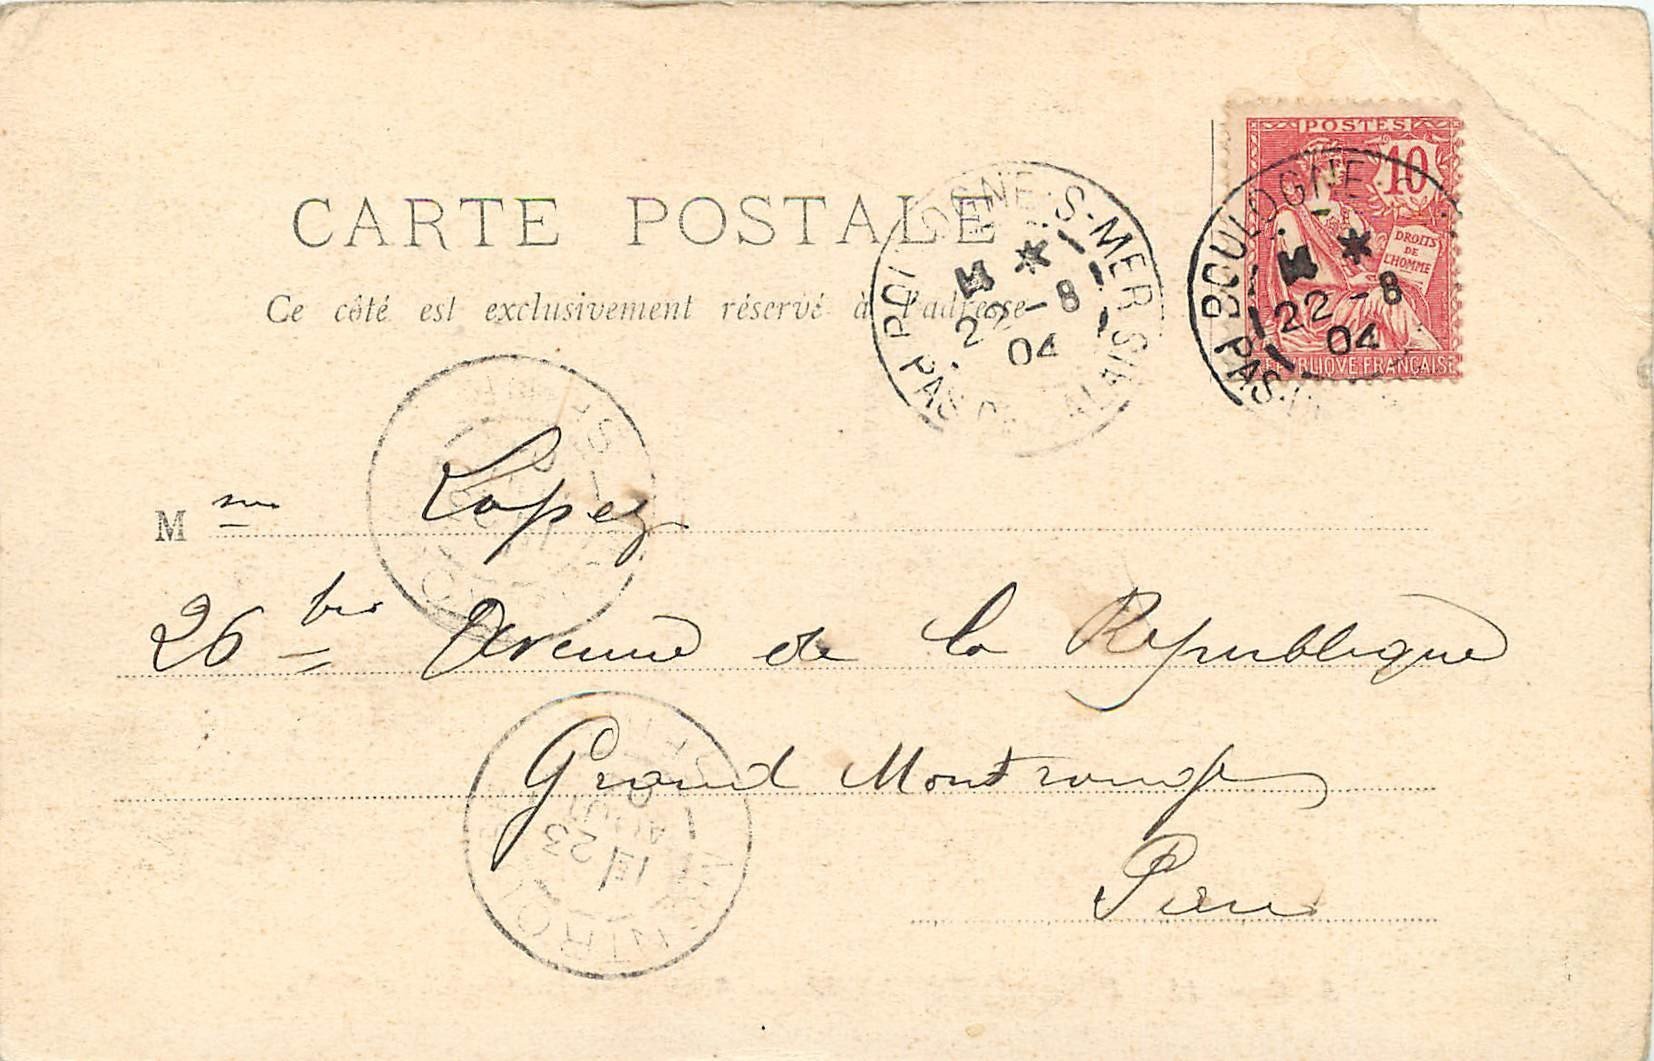 POSTES
10
DROITS
DE
L'HOMME
REPUBLIQUE FRANÇAISE
BOULOGNE
PAS
22 - 8
04
BOULOGNE-S-MER
PAS DE CALAIS
22 - 8
04
CARTE POSTALE
Ce côté est exclusivement réservé à l'adresse
Mme Lopez
26 bis Avenue de la République
Grand Montrouge
23
AOUT